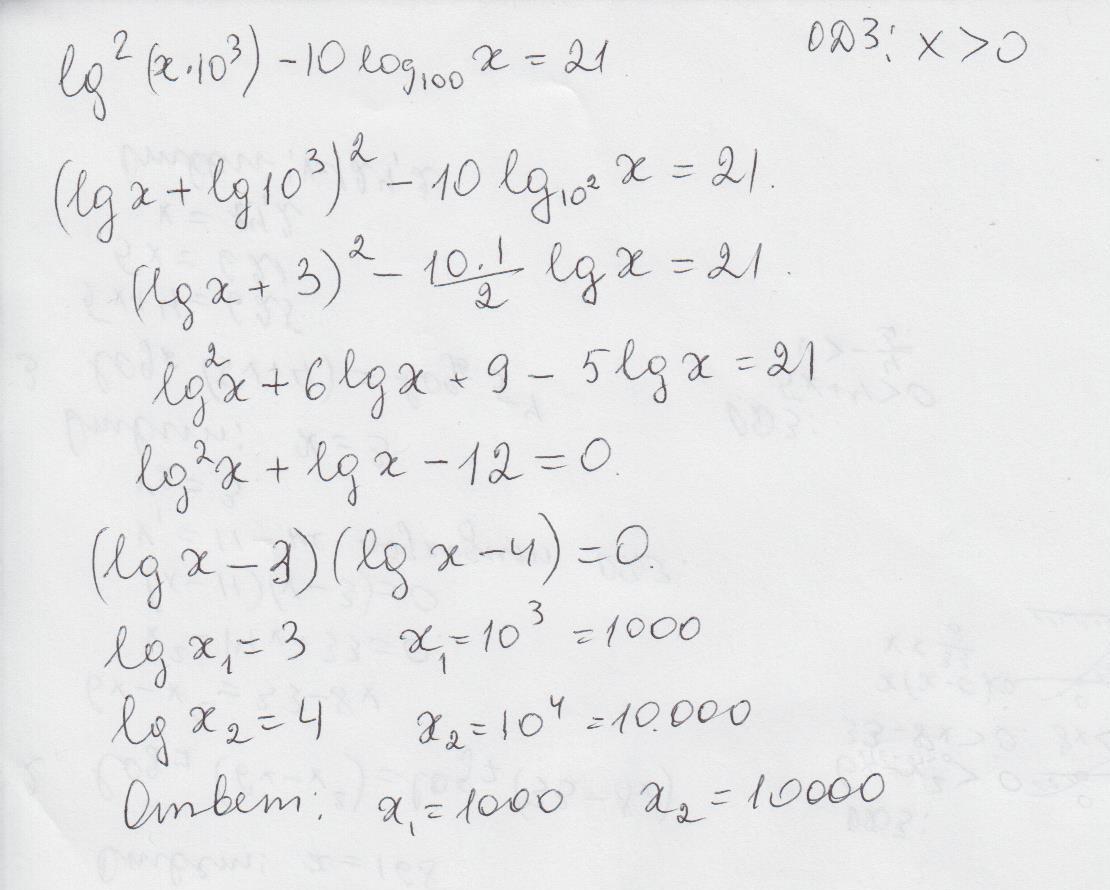 lg²(x·10³) - 10 log₁₀₀ x = 21 ОДЗ: x > 0
(lg x + lg 10³)² - 10 lg₁₀² x = 21.
(lg x + 3)² - 10·1/2 lg x = 21.
lg²x + 6 lg x + 9 - 5 lg x = 21
lg²x + lg x - 12 = 0.
(lg x - 3)(lg x - 4) = 0.
lg x₁ = 3 x₁ = 10³ = 1000
lg x₂ = 4 x₂ = 10⁴ = 10.000
Ответ: x₁ = 1000 x₂ = 10000